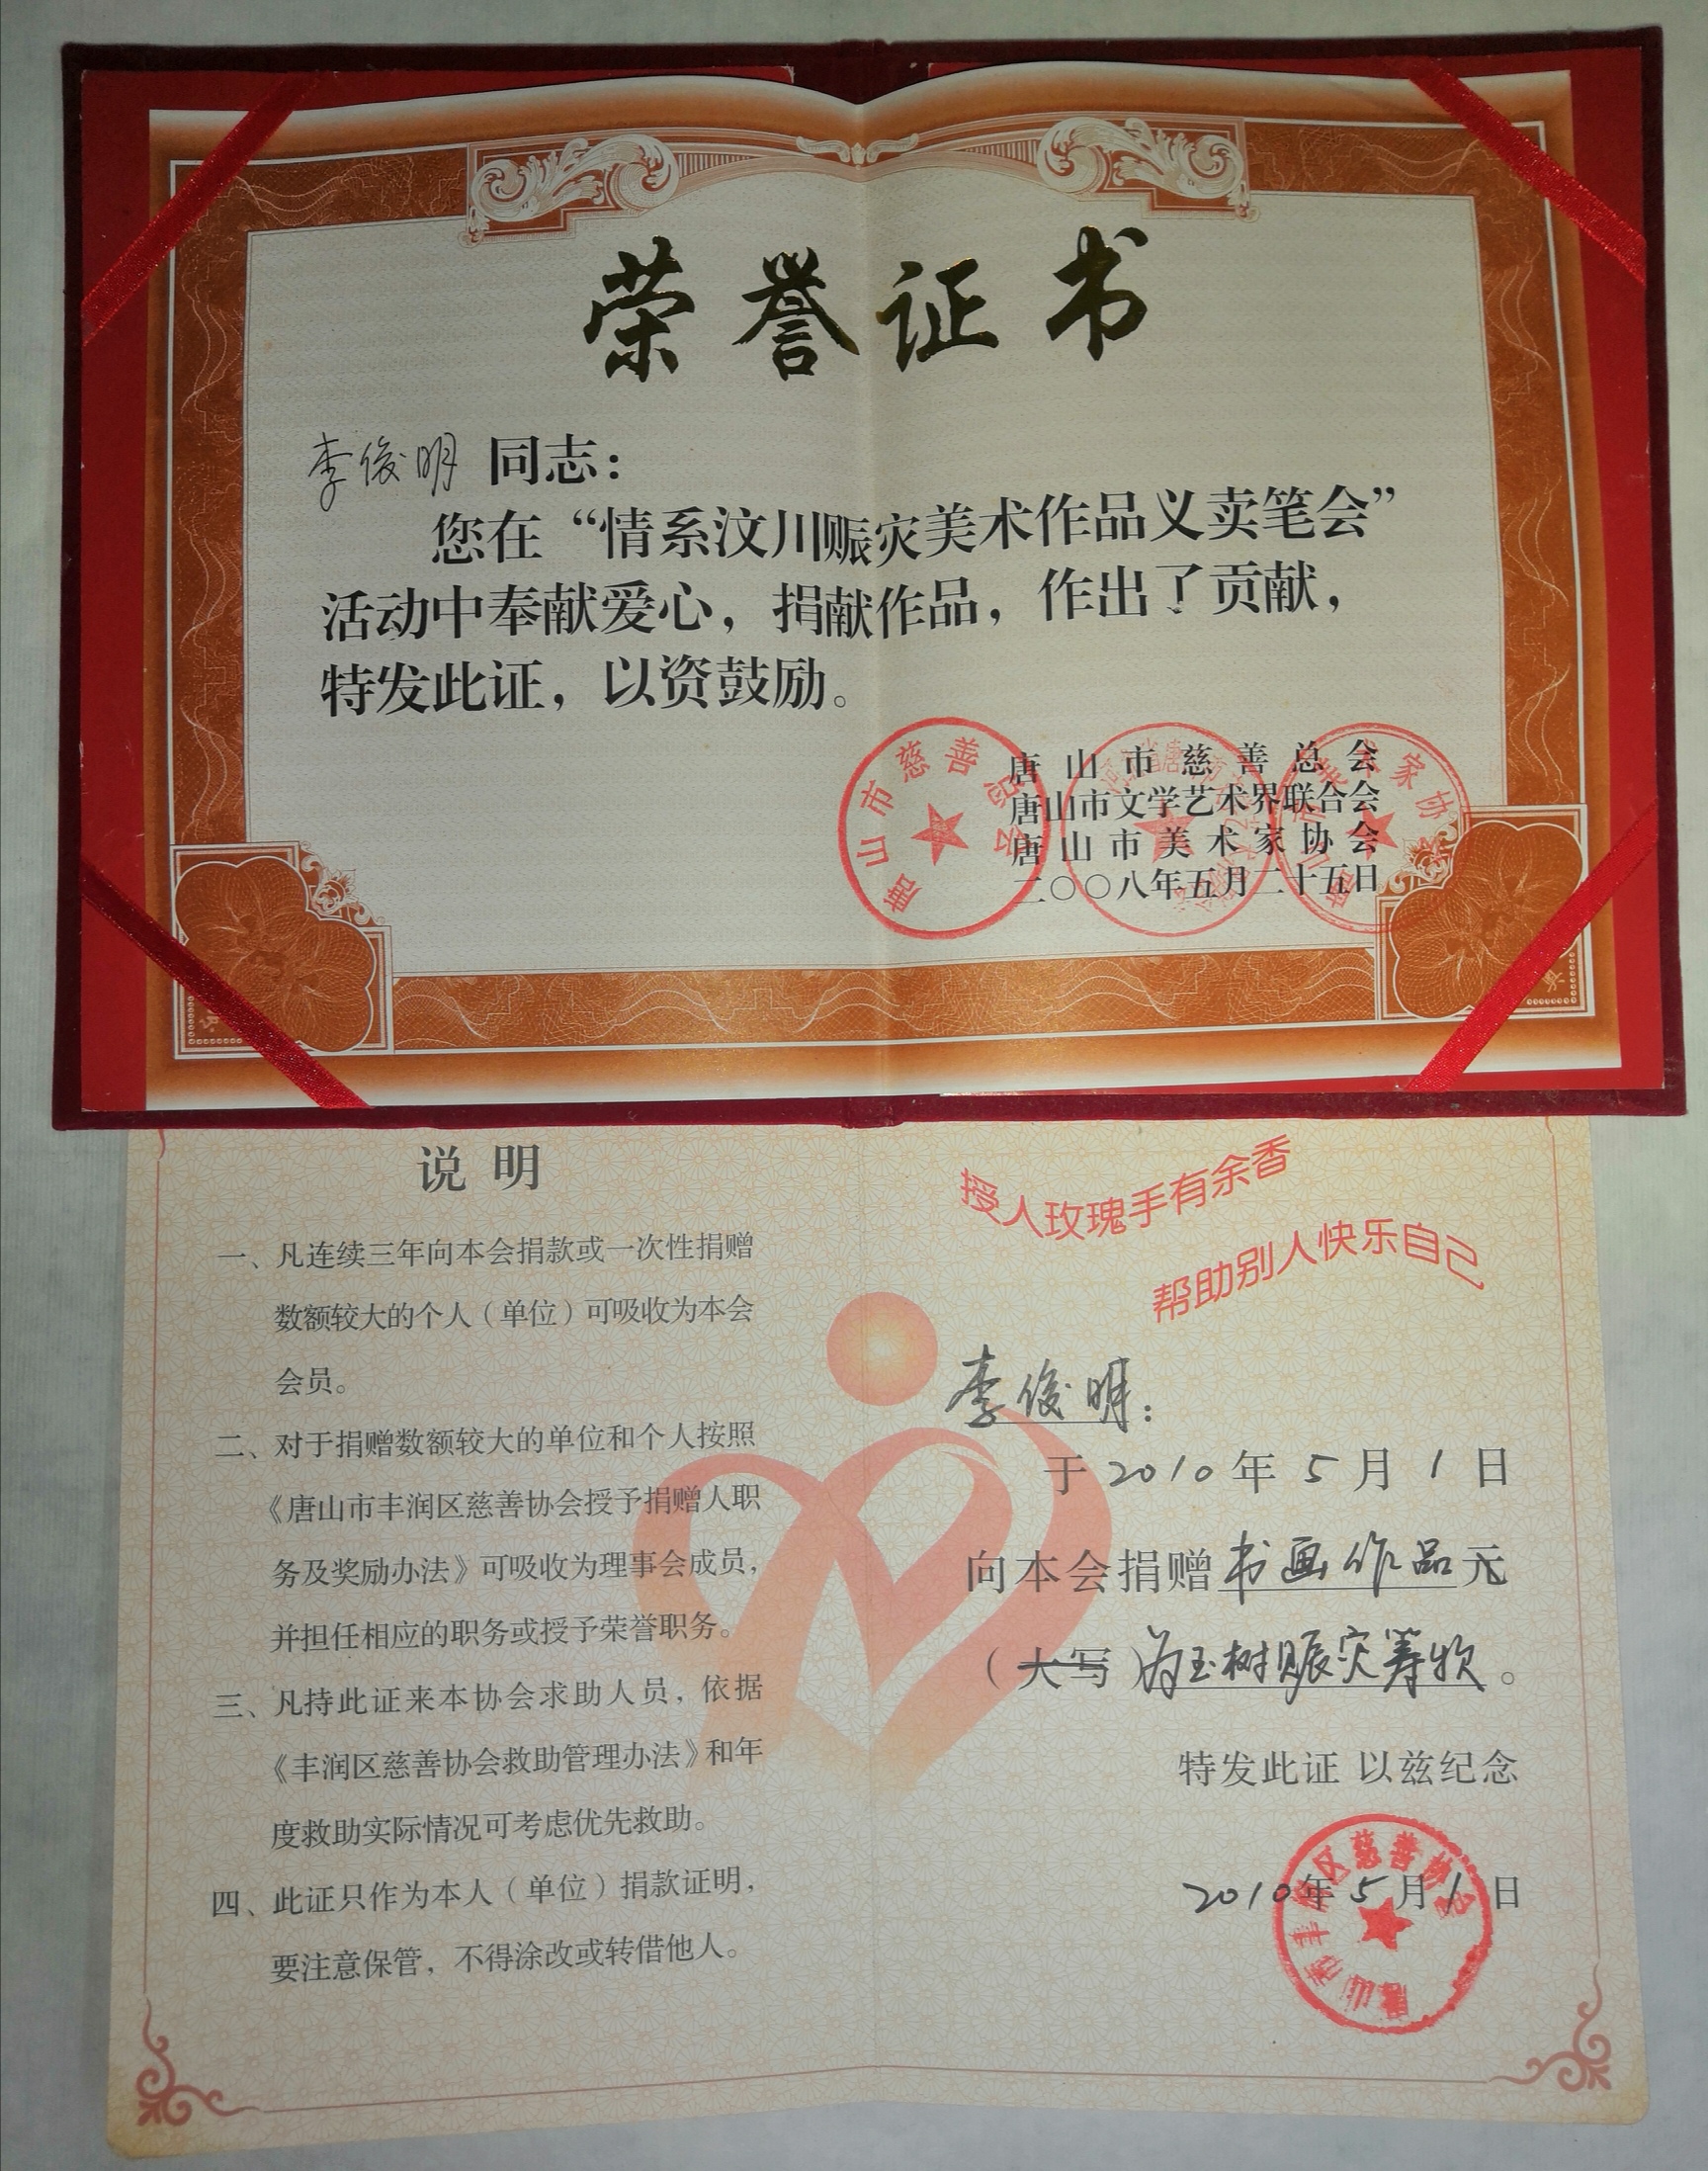 荣誉证书
李俊明 同志：
您在“情系汶川赈灾美术作品义卖笔会”
活动中奉献爱心，捐献作品，作出了贡献，
特发此证，以资鼓励。
唐山市慈善总会
唐山市文学艺术界联合会
唐山市美术家协会
二〇〇八年五月二十五日
唐山市慈善总会
说明
一、凡连续三年向本会捐款或一次性捐赠
数额较大的个人（单位）可吸收为本会
会员。
二、对于捐赠数额较大的单位和个人按照
《唐山市丰润区慈善协会授予捐赠人职
务及奖励办法》可吸收为理事会成员，
并担任相应的职务或授予荣誉职务。
三、凡持此证来本协会求助人员，依据
《丰润区慈善协会救助管理办法》和年
度救助实际情况可考虑优先救助。
四、此证只作为本人（单位）捐款证明，
要注意保管，不得涂改或转借他人。
授人玫瑰手有余香
帮助别人快乐自己
李俊明：
于2010年5月1日
向本会捐赠书画作品元
（大写）为玉树赈灾筹款。
特发此证 以兹纪念
2010年5月1日
唐山市丰润区慈善协会